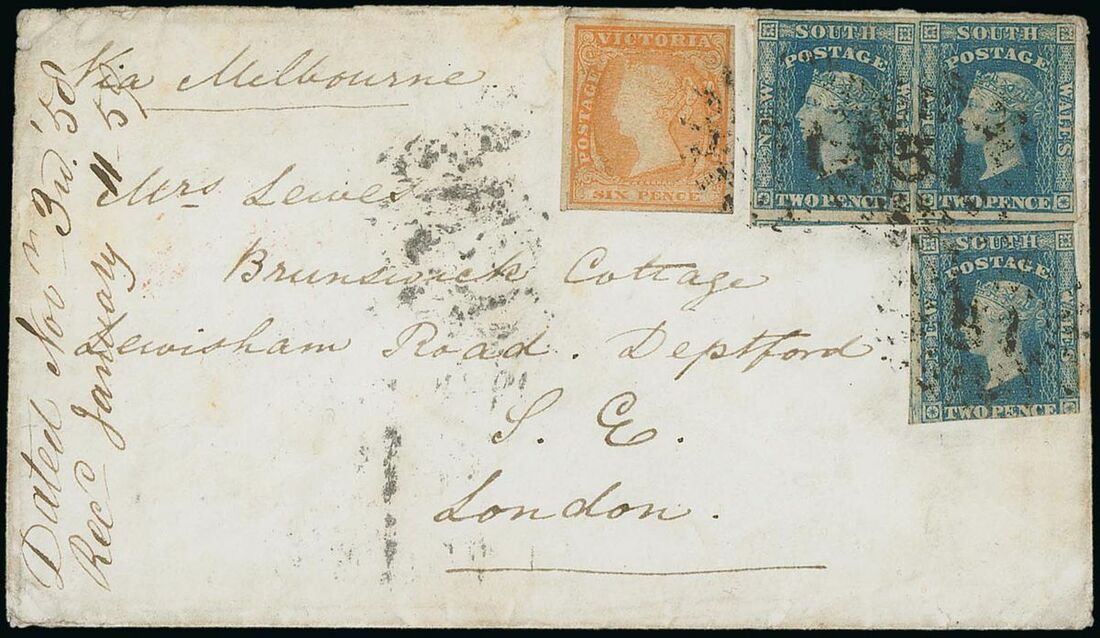 Via Melbourne
Mrs Lewes
Brunswick Cottage
Lewisham Road. Deptford
S. E.
London.
Dated Nov 3rd '58
Recd January 11 59
VICTORIA
POSTAGE
SIX PENCE
SOUTH
POSTAGE
NEW
WALES
TWO PENCE
SOUTH
POSTAGE
NEW
WALES
TWO PENCE
SOUTH
POSTAGE
NEW
WALES
TWO PENCE